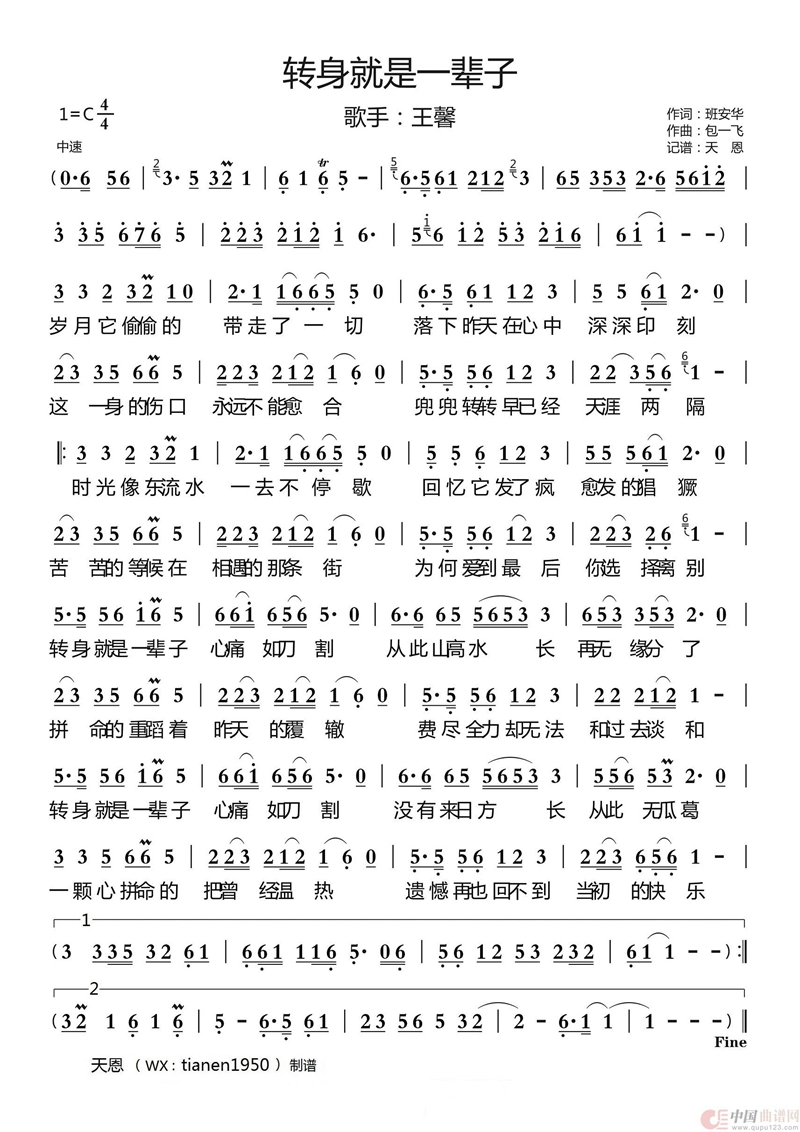 转身就是一辈子
1=C 4/4
歌手：王馨
作词：班安华
作曲：包一飞
中速
记谱：天 恩
(0·6 56 | 2 3·5 32 1 | 6 1 6 tr 5 - | 5 6·561 212 2 3 | 65 353 2·6 5612 |
3 35 676 5 | 223 212 1 6· | 5 1 6 12 53 216 | 61 1 - - ) |
3 3 2 32 10 | 2·1 1665 5 0 | 6·5 61 1 2 3 | 5 5 61 2·0 |
岁月它偷偷的 带走了一切 落下昨天在心中 深深印刻
23 35 66 5 | 223 212 1 6 0 | 5·5 56 123 3 | 22 356 6 1 - |
这一身的伤口 永远不能愈合 兜兜转转早已经 天涯两隔
‖: 3 3 2 32 1 | 2·1 1665 5 0 | 5 5 6 123 3 | 55 561 2·0 |
时光像东流水 一去不停歇 回忆它发了疯 愈发的猖獗
23 35 66 5 | 223 212 1 6 0 | 5·5 56 123 3 | 523 26 6 1 - |
苦苦的等候在 相遇的那条街 为何爱到最后 你选择离别
5·5 56 16 5 | 661 656 5·0 | 6·6 65 5653 3 | 653 353 2·0 |
转身就是一辈子 心痛如刀割 从此山高水长 再无缘分了
23 35 66 5 | 223 212 1 6 0 | 5·5 56 123 3 | 22 212 1 - |
拼命的重蹈着 昨天的覆辙 费尽全力却无法 和过去谈和
5·5 56 16 5 | 661 656 5·0 | 6·6 65 5653 3 | 656 53 2·0 |
转身就是一辈子 心痛如刀割 没有来日方长 从此无瓜葛
3 35 66 5 | 223 212 1 6 0 | 5·5 56 123 3 | 223 656 1 - |
一颗心拼命的 把曾经温热 遗憾再也回不到 当初的快乐
1
(3 335 32 61 | 661 116 5·06 | 56 12 53 232 | 61 1 - - ) :‖
2
(32 1 61 6 | 5 - 6·56 1 | 23 565 32 2 | 2 - 6·1 1 | 1 - - - ) ‖
Fine
天恩 （WX：tianen1950 ）制谱
中国曲谱网
www.qupu123.com